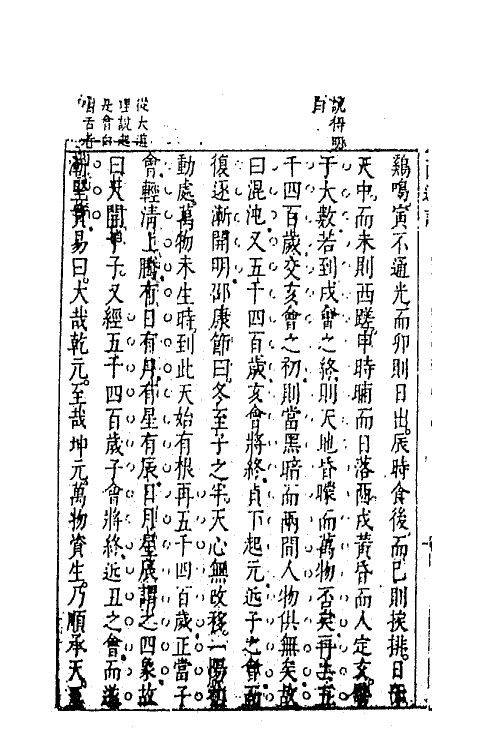 說得明
白
從大道
理說起
是會白
舌者
鷄鳴寅不通光而卯則日出辰時食後而巳則挨排日午
天中而未則西蹉申時晡而日落酉戌黃昏而人定亥譬
于大數若到戌會之終則天地昏曚而萬物否矣再去五
千四百歲交亥會之初則當黑暗而兩間人物俱無矣故
曰混沌又五千四百歲亥會將終貞下起元近子之會而
復逐漸開明邵康節曰冬至子之半天心無改移一陽初
動處萬物未生時到此天始有根再五千四百歲正當子
會輕清上騰有日有月有星有辰日月星辰謂之四象故
曰天開于子又經五千四百歲子會將終近丑之會而遂
漸堅實易曰大哉乾元至哉坤元萬物資生乃順承天至